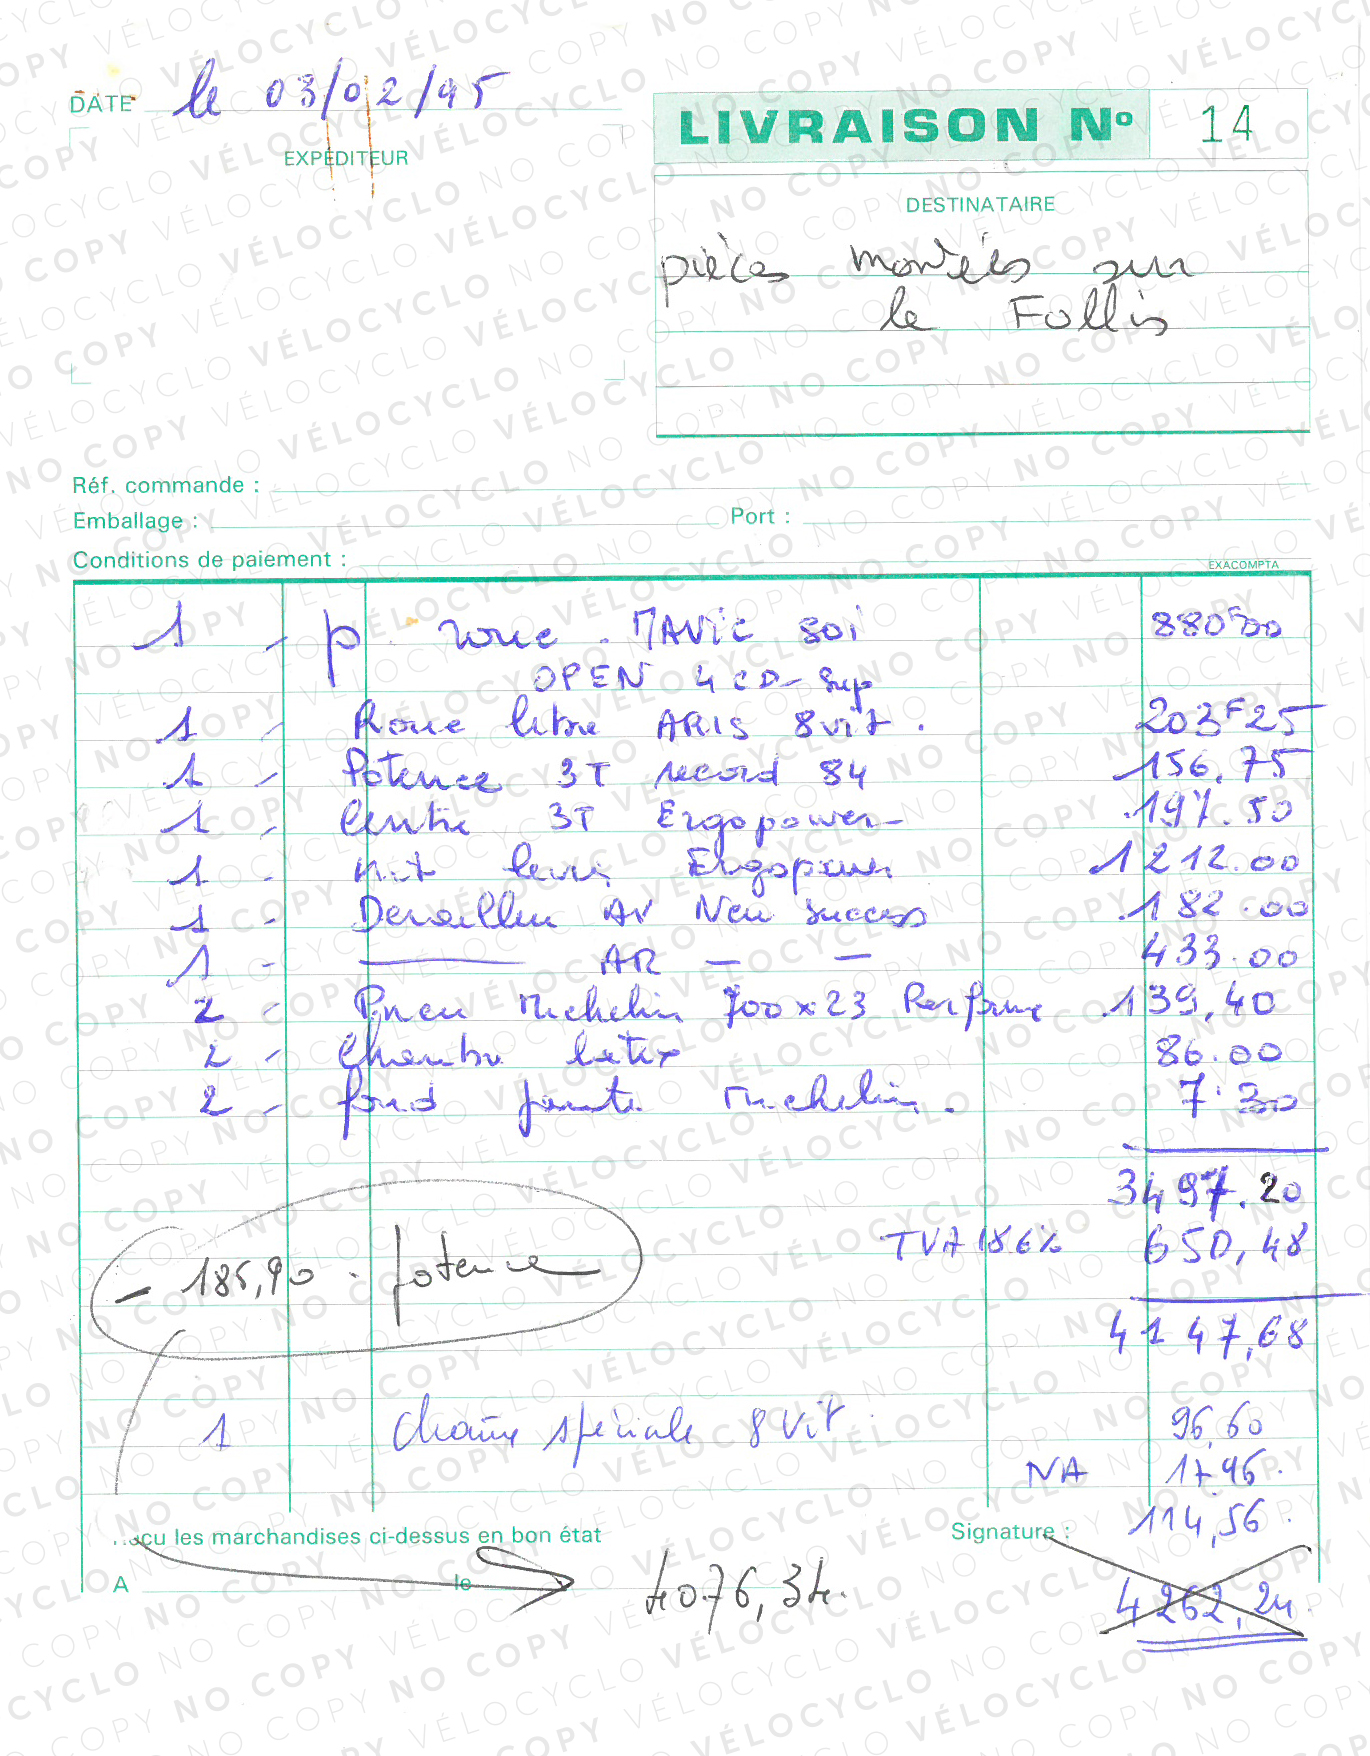 DATE le 03/02/95
EXPÉDITEUR
LIVRAISON Nº 14
DESTINATAIRE
pièces montées sur
le Follis
Réf. commande :
Emballage : Port :
Conditions de paiement :
EXACOMPTA
1 - p. roue . MAVIC 801 880F00
OPEN 4 CD- Sup
1 - Roue libre ARIS 8vit. 203F25
1 - Potence 3T record 84 156,75
1 - Centre 3T Ergopower- 197.50
1 - Kit levier Ergopower 1212.00
1 - Derailleur AV New success 182.00
1 - —— AR — — 433.00
2 - Pneu Michelin 700x23 Perform 139,40
2 - Chambr latex 86.00
2 - fond jante Michelin. 7.30
3497.20
TVA 18 6% 650,48
- 185,90 . potence
4147,68
1 Chaîne spéciale 8 Vit. 96,60
TVA 17.96.
114,56.
Reçu les marchandises ci-dessus en bon état Signature :
A le 4076,34.
4262,24.
VÉLOCYCLO NO COPY